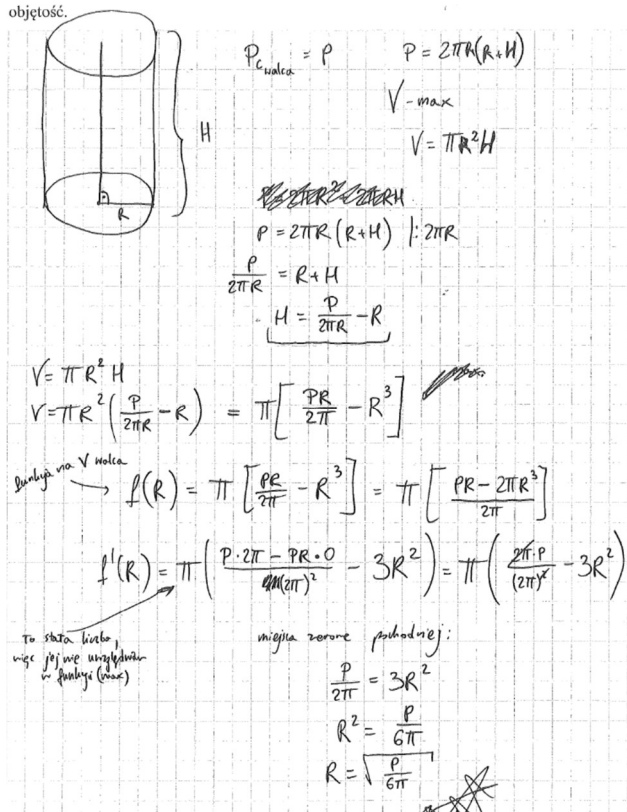 objętość.
P_c walca = P    P = 2πR(R+H)
V - max
H
V = πR²H
R
P = 2πR(R+H) |: 2πR
P/(2πR) = R+H
H = P/(2πR) - R
V = πR² H
V = πR² (P/(2πR) - R) = π[PR/(2π) - R³]
funkcja na V walca
f(R) = π[PR/(2π) - R³] = π[(PR - 2πR³)/(2π)]
f'(R) = π((P·2π - PR·0)/(2π)² - 3R²) = π((2π·P)/(2π)² - 3R²)
To stała liczba,
więc jej nie uwzględniam
w funkcji (max)
miejsca zerowe pochodnej:
P/(2π) = 3R²
R² = P/(6π)
R = √(P/(6π))